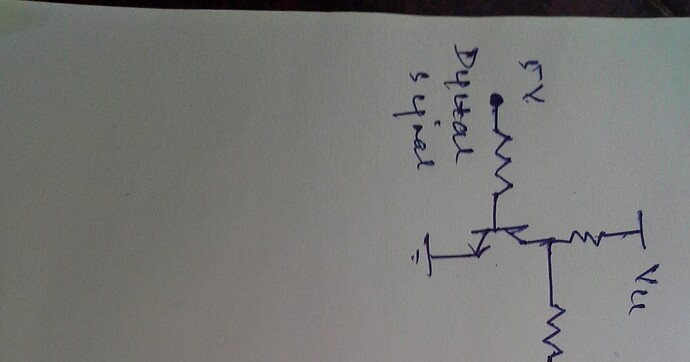 5V
Digital
signal
Vcc